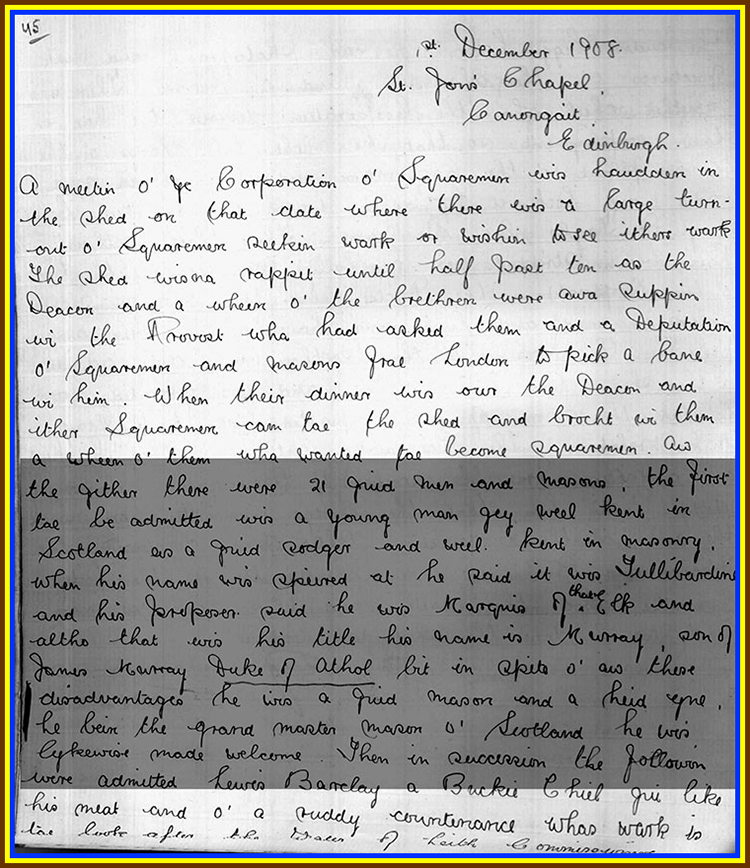 45
1st. December 1908.
St. Jon's Chapel.
Canongait.
Edinburgh.
A meetin o' ye Corporation o' Squaremen wis haudden in
the shed on that date where there wis a large turn-
out o' Squaremen seekin wark or wishin to see ithers wark
The shed wisna rappit until half past ten as the
Deacon and a wheen o' the brethren were awa suppin
wi the Provost wha had asked them and a Deputation
o' Squaremen and masons frae London to pick a bane
wi him. When their dinner wis our the Deacon and
ither Squaremen cam tae the shed and brocht wi them
a wheen o' them wha wanted tae become squaremen. Aw
the gither there were 21 guid men and masons, the first
tae be admitted wis a young man gey weel kent in
Scotland as a guid sodger and weel kent in masonry,
when his name wis speired at he said it wis Tullibardine
and his proposer said he wis Marquis of that Elk and
altho that wis his title his name is Murray, son of
James Murray Duke of Athol bit in spite o' aw these
disadvantages he wis a guid mason and a heid yne,
he bein the grand master mason o' Scotland he wis
lykewise made welcome. Then in succession the followin
were admitted Lewis Barclay a Buckie Chiel gui like
his meat and o' a ruddy countenance whas wark is
tae look after the of Leith Commissioners